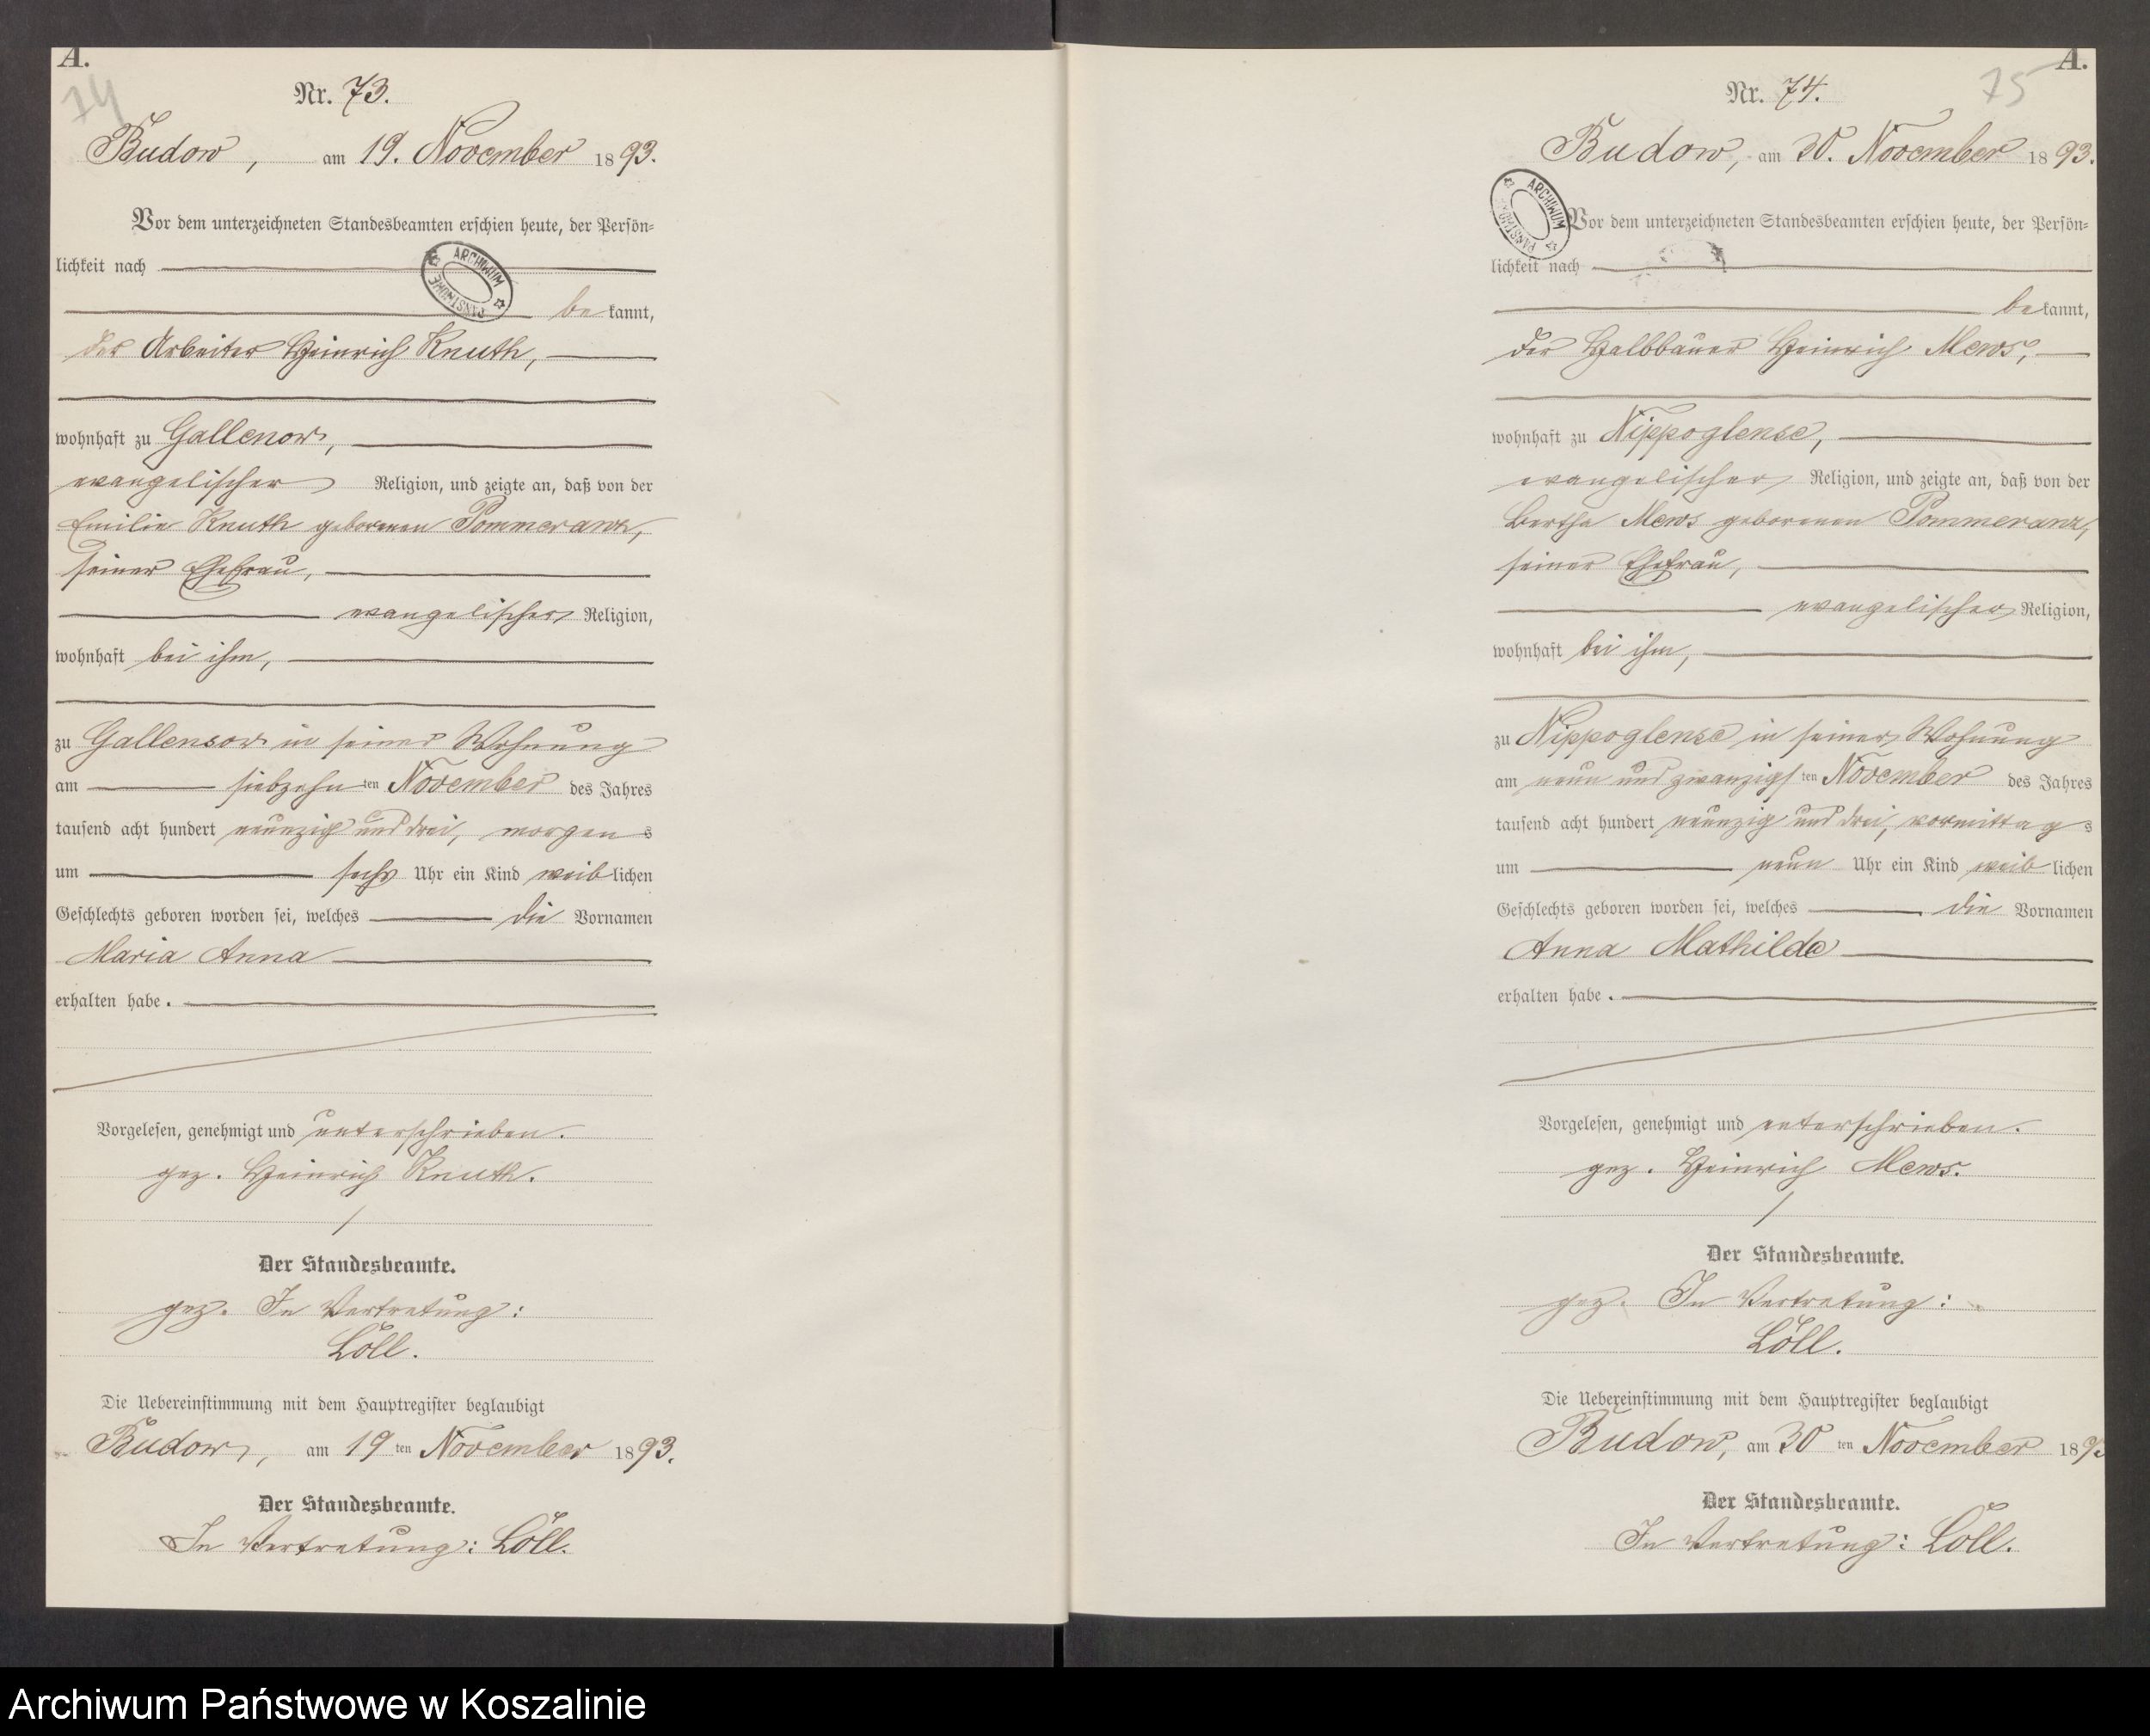 A.
74
Nr. 73.
Budow, am 19. November 1893.
Vor dem unterzeichneten Standesbeamten erschien heute, der Persön-
lichkeit nach
bekannt,
der Arbeiter Heinrich Knuth,
wohnhaft zu Gallenow,
evangelischer Religion, und zeigte an, daß von der
Emilie Knuth geborenen Pommeranz,
seiner Ehefrau,
evangelischer Religion,
wohnhaft bei ihm,
zu Gallensow in seiner Wohnung
am siebzehnten November des Jahres
tausend acht hundert neunzig und drei, morgens
um sechs Uhr ein Kind weiblichen
Geschlechts geboren worden sei, welches die Vornamen
Maria Anna
erhalten habe.
Vorgelesen, genehmigt und unterschrieben.
gez. Heinrich Knuth.
Der Standesbeamte.
gez. In Vertretung:
Löll.
Die Uebereinstimmung mit dem Hauptregister beglaubigt
Budow, am 19ten November 1893.
Der Standesbeamte.
In Vertretung: Löll.
ARCHIWUM PAŃSTWOWE
A.
75
Nr. 74.
Budow, am 30. November 1893.
Vor dem unterzeichneten Standesbeamten erschien heute, der Persön-
lichkeit nach
bekannt,
der Halbbauer Heinrich Mews,
wohnhaft zu Nippoglense,
evangelischer Religion, und zeigte an, daß von der
Bertha Mews geborenen Pommeranz,
seiner Ehefrau,
evangelischer Religion,
wohnhaft bei ihm,
zu Nippoglense in seiner Wohnung
am neun und zwanzigsten November des Jahres
tausend acht hundert neunzig und drei, vormittags
um neun Uhr ein Kind weiblichen
Geschlechts geboren worden sei, welches die Vornamen
Anna Mathilde
erhalten habe.
Vorgelesen, genehmigt und unterschrieben.
gez. Heinrich Mews.
Der Standesbeamte.
gez. In Vertretung:
Löll.
Die Uebereinstimmung mit dem Hauptregister beglaubigt
Budow, am 30ten November 189
Der Standesbeamte.
In Vertretung: Löll.
ARCHIWUM PAŃSTWOWE
Archiwum Państwowe w Koszalinie